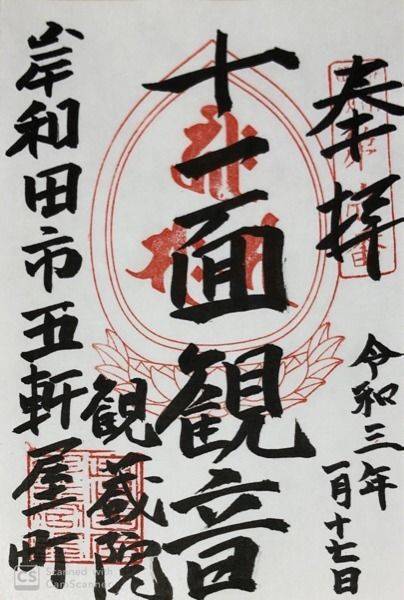 奉拝
令和三年
一月十七日
十一面観音
観蔵院
岸和田市五軒屋町
CS Scanned with
CamScanner